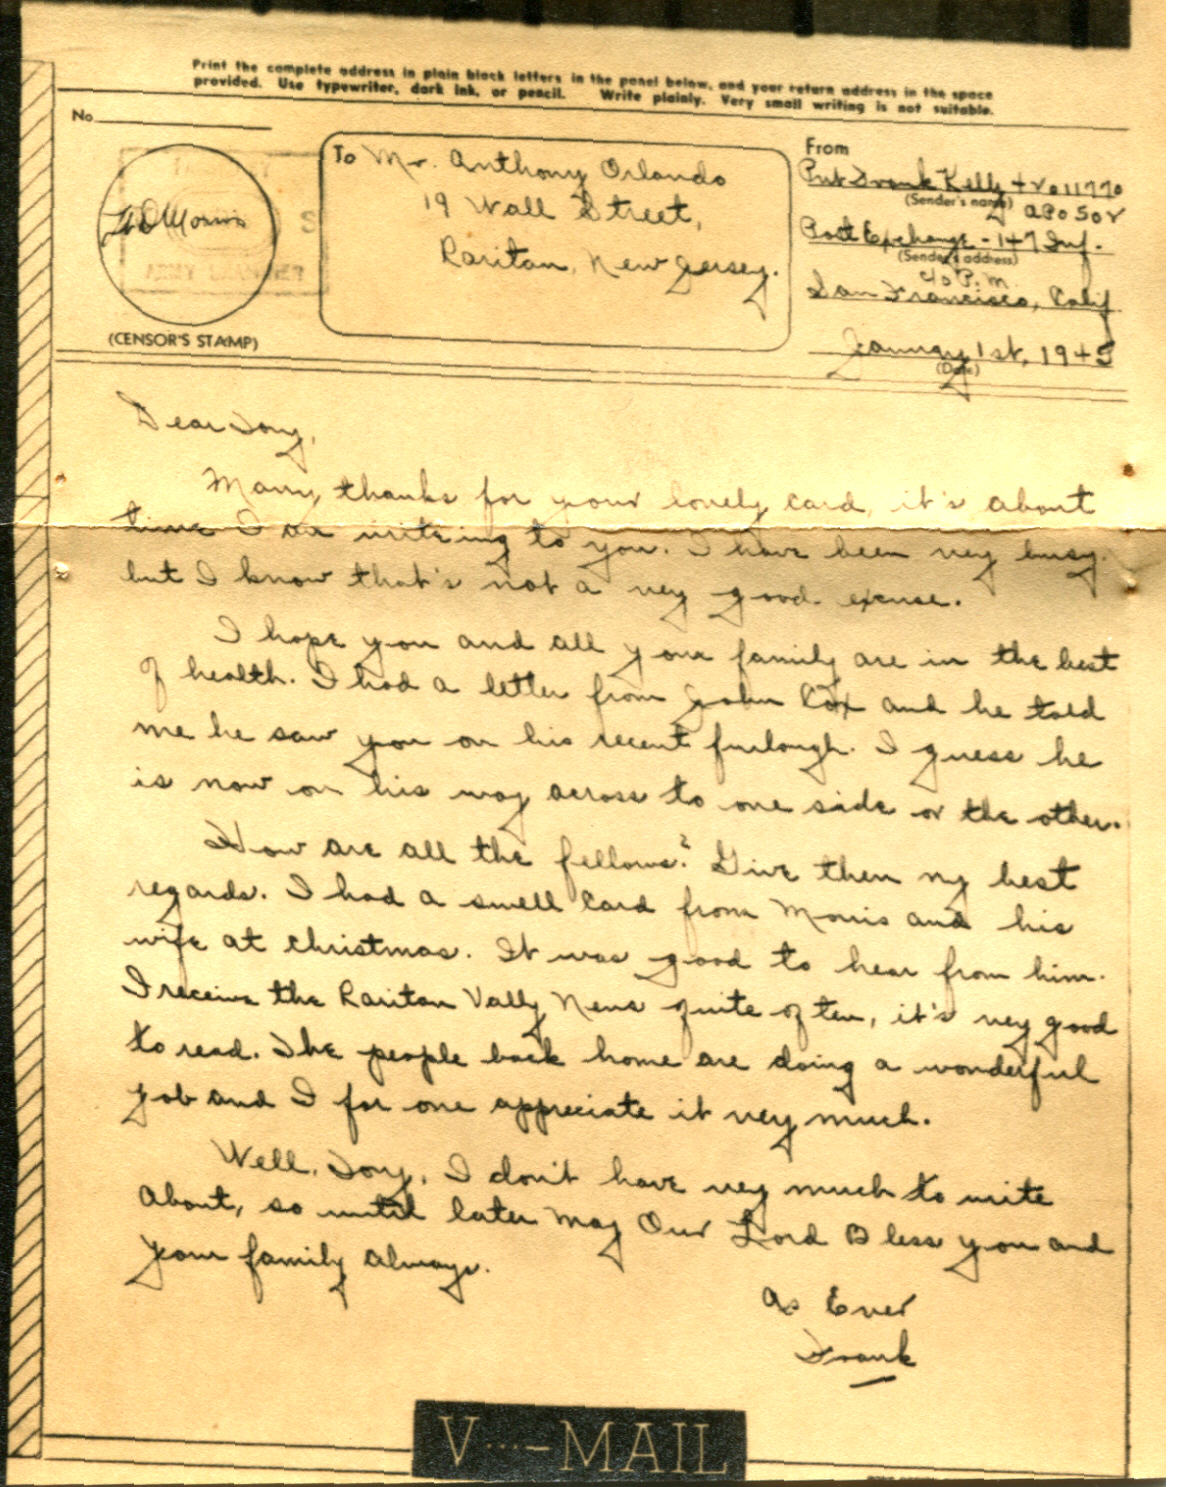 Print the complete address in plain block letters in the panel below, and your return address in the space
provided. Use typewriter, dark ink, or pencil. Write plainly. Very small writing is not suitable.
No.
(CENSOR'S STAMP)
To Mr. Anthony Orlando
19 Wall Street,
Raritan, New Jersey.
From
Pvt Frank Kelly 42011770
(Sender's name)
APO 502
Post Exchange - 147 Inf.
(Sender's address)
c/o P.M.
San Francisco, Calif
January 1st, 1945
(Date)
Dear Tony,
Many thanks for your lovely card, it's about
time I am writeing to you. I have been very busy.
but I know that's not a very good excuse.
I hope you and all your family are in the best
of health. I had a letter from John Cox and he told
me he saw you on his recent furlough. I guess he
is now on his way across to one side or the other.
How are all the fellows? Give them my best
regards. I had a swell card from Morris and his
wife at Christmas. It was good to hear from him.
I receive the Raritan Vally News quite often, it's very good
to read. The people back home are doing a wonderful
job and I for one appreciate it very much.
Well, Tony, I don't have very much to write
about, so until later may Our Lord Bless you and
your family always.
As Ever
Frank
V···—MAIL